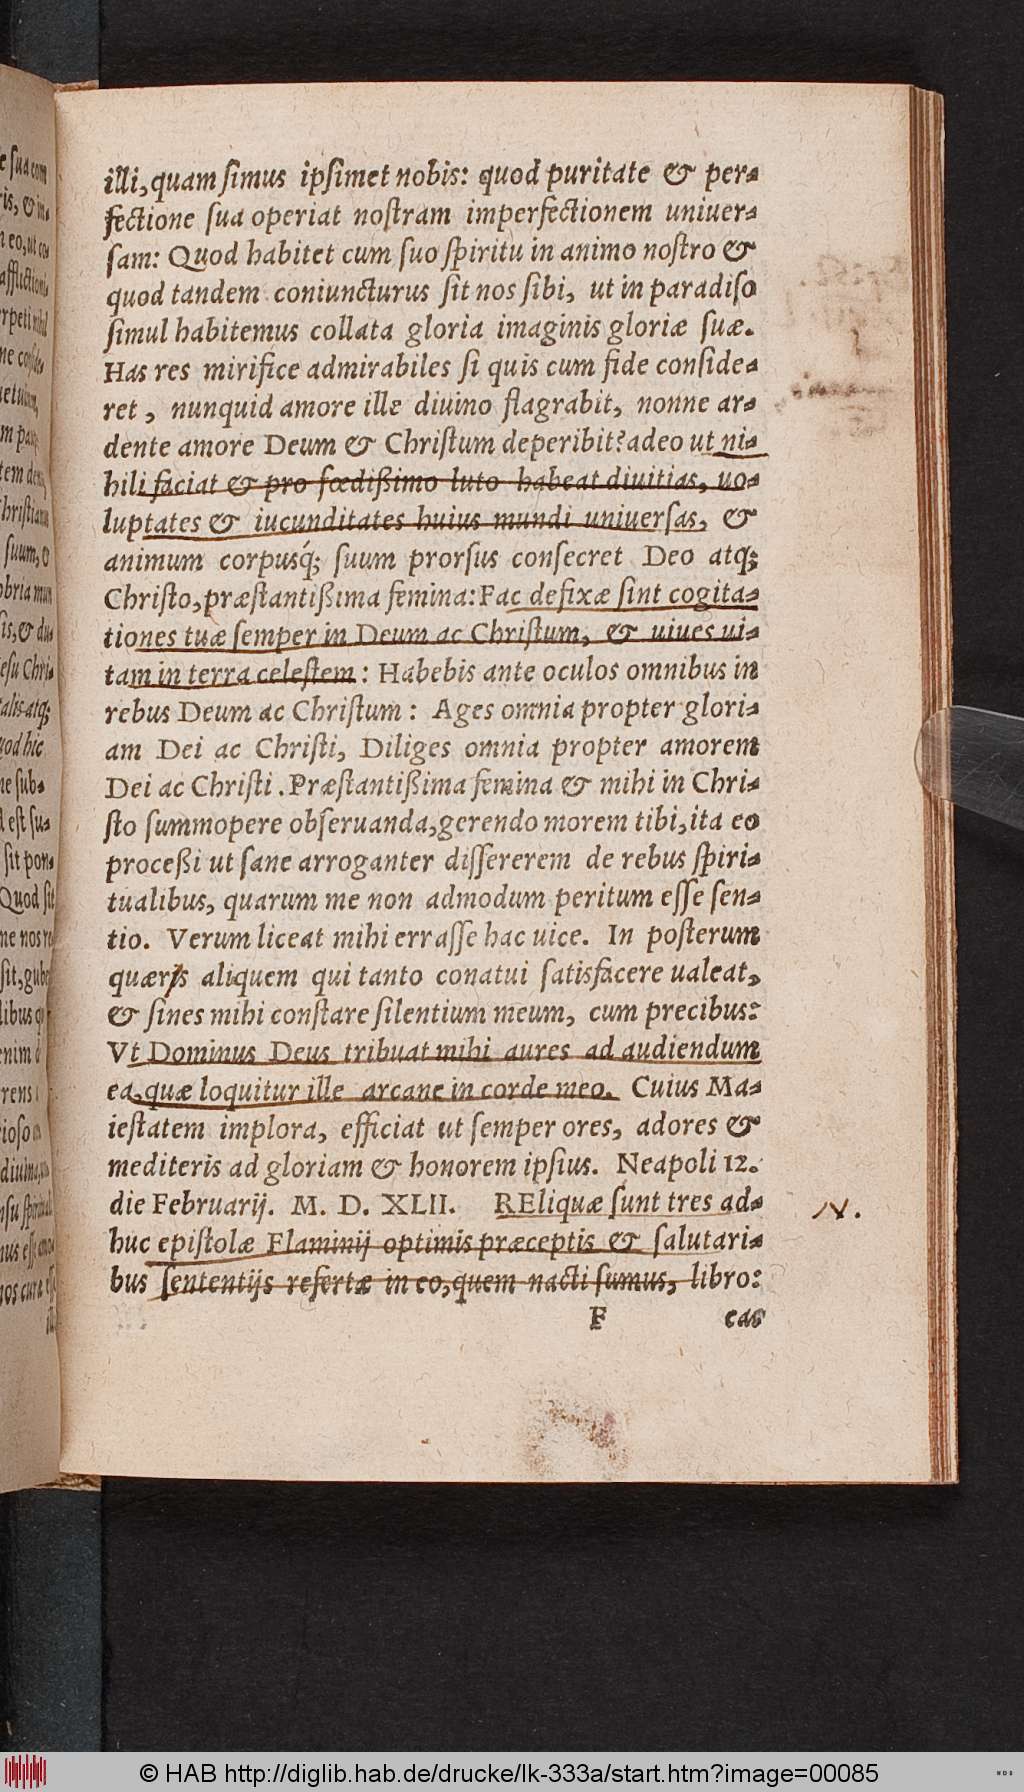 illi, quam simus ipsimet nobis: quod puritate & per-
fectione sua operiat nostram imperfectionem uniuer-
sam: Quod habitet cum suo spiritu in animo nostro &
quod tandem coniuncturus sit nos sibi, ut in paradiso
simul habitemus collata gloria imaginis gloriæ suæ.
Has res mirifice admirabiles si quis cum fide conside-
ret, nunquid amore ille diuino flagrabit, nonne ar-
dente amore Deum & Christum deperibit? adeo ut ni-
hili faciat & pro fœdißimo luto habeat diuitias, uo-
luptates & iucunditates huius mundi uniuersas, &
animum corpusq́; suum prorsus consecret Deo atq;
Christo, præstantißima femina: Fac defixæ sint cogita-
tiones tuæ semper in Deum ac Christum, & uiues ui-
tam in terra celestem: Habebis ante oculos omnibus in
rebus Deum ac Christum: Ages omnia propter glori-
am Dei ac Christi, Diliges omnia propter amorem
Dei ac Christi. Præstantißima femina & mihi in Chri-
sto summopere obseruanda, gerendo morem tibi, ita eo
proceßi ut sane arroganter dissererem de rebus spiri-
tualibus, quarum me non admodum peritum esse sen-
tio. Verum liceat mihi errasse hac uice. In posterum
quæris aliquem qui tanto conatui satisfacere ualeat,
& sines mihi constare silentium meum, cum precibus:
Vt Dominus Deus tribuat mihi aures ad audiendum
ea, quæ loquitur ille arcane in corde meo. Cuius Ma-
iestatem implora, efficiat ut semper ores, adores &
mediteris ad gloriam & honorem ipsius. Neapoli 12.
die Februarij. M. D. XLII. REliquæ sunt tres ad-
huc epistolæ Flaminij optimis præceptis & salutari-
bus sententijs refertæ in eo, quem nacti sumus, libro:
F cas
© HAB http://diglib.hab.de/drucke/lk-333a/start.htm?image=00085